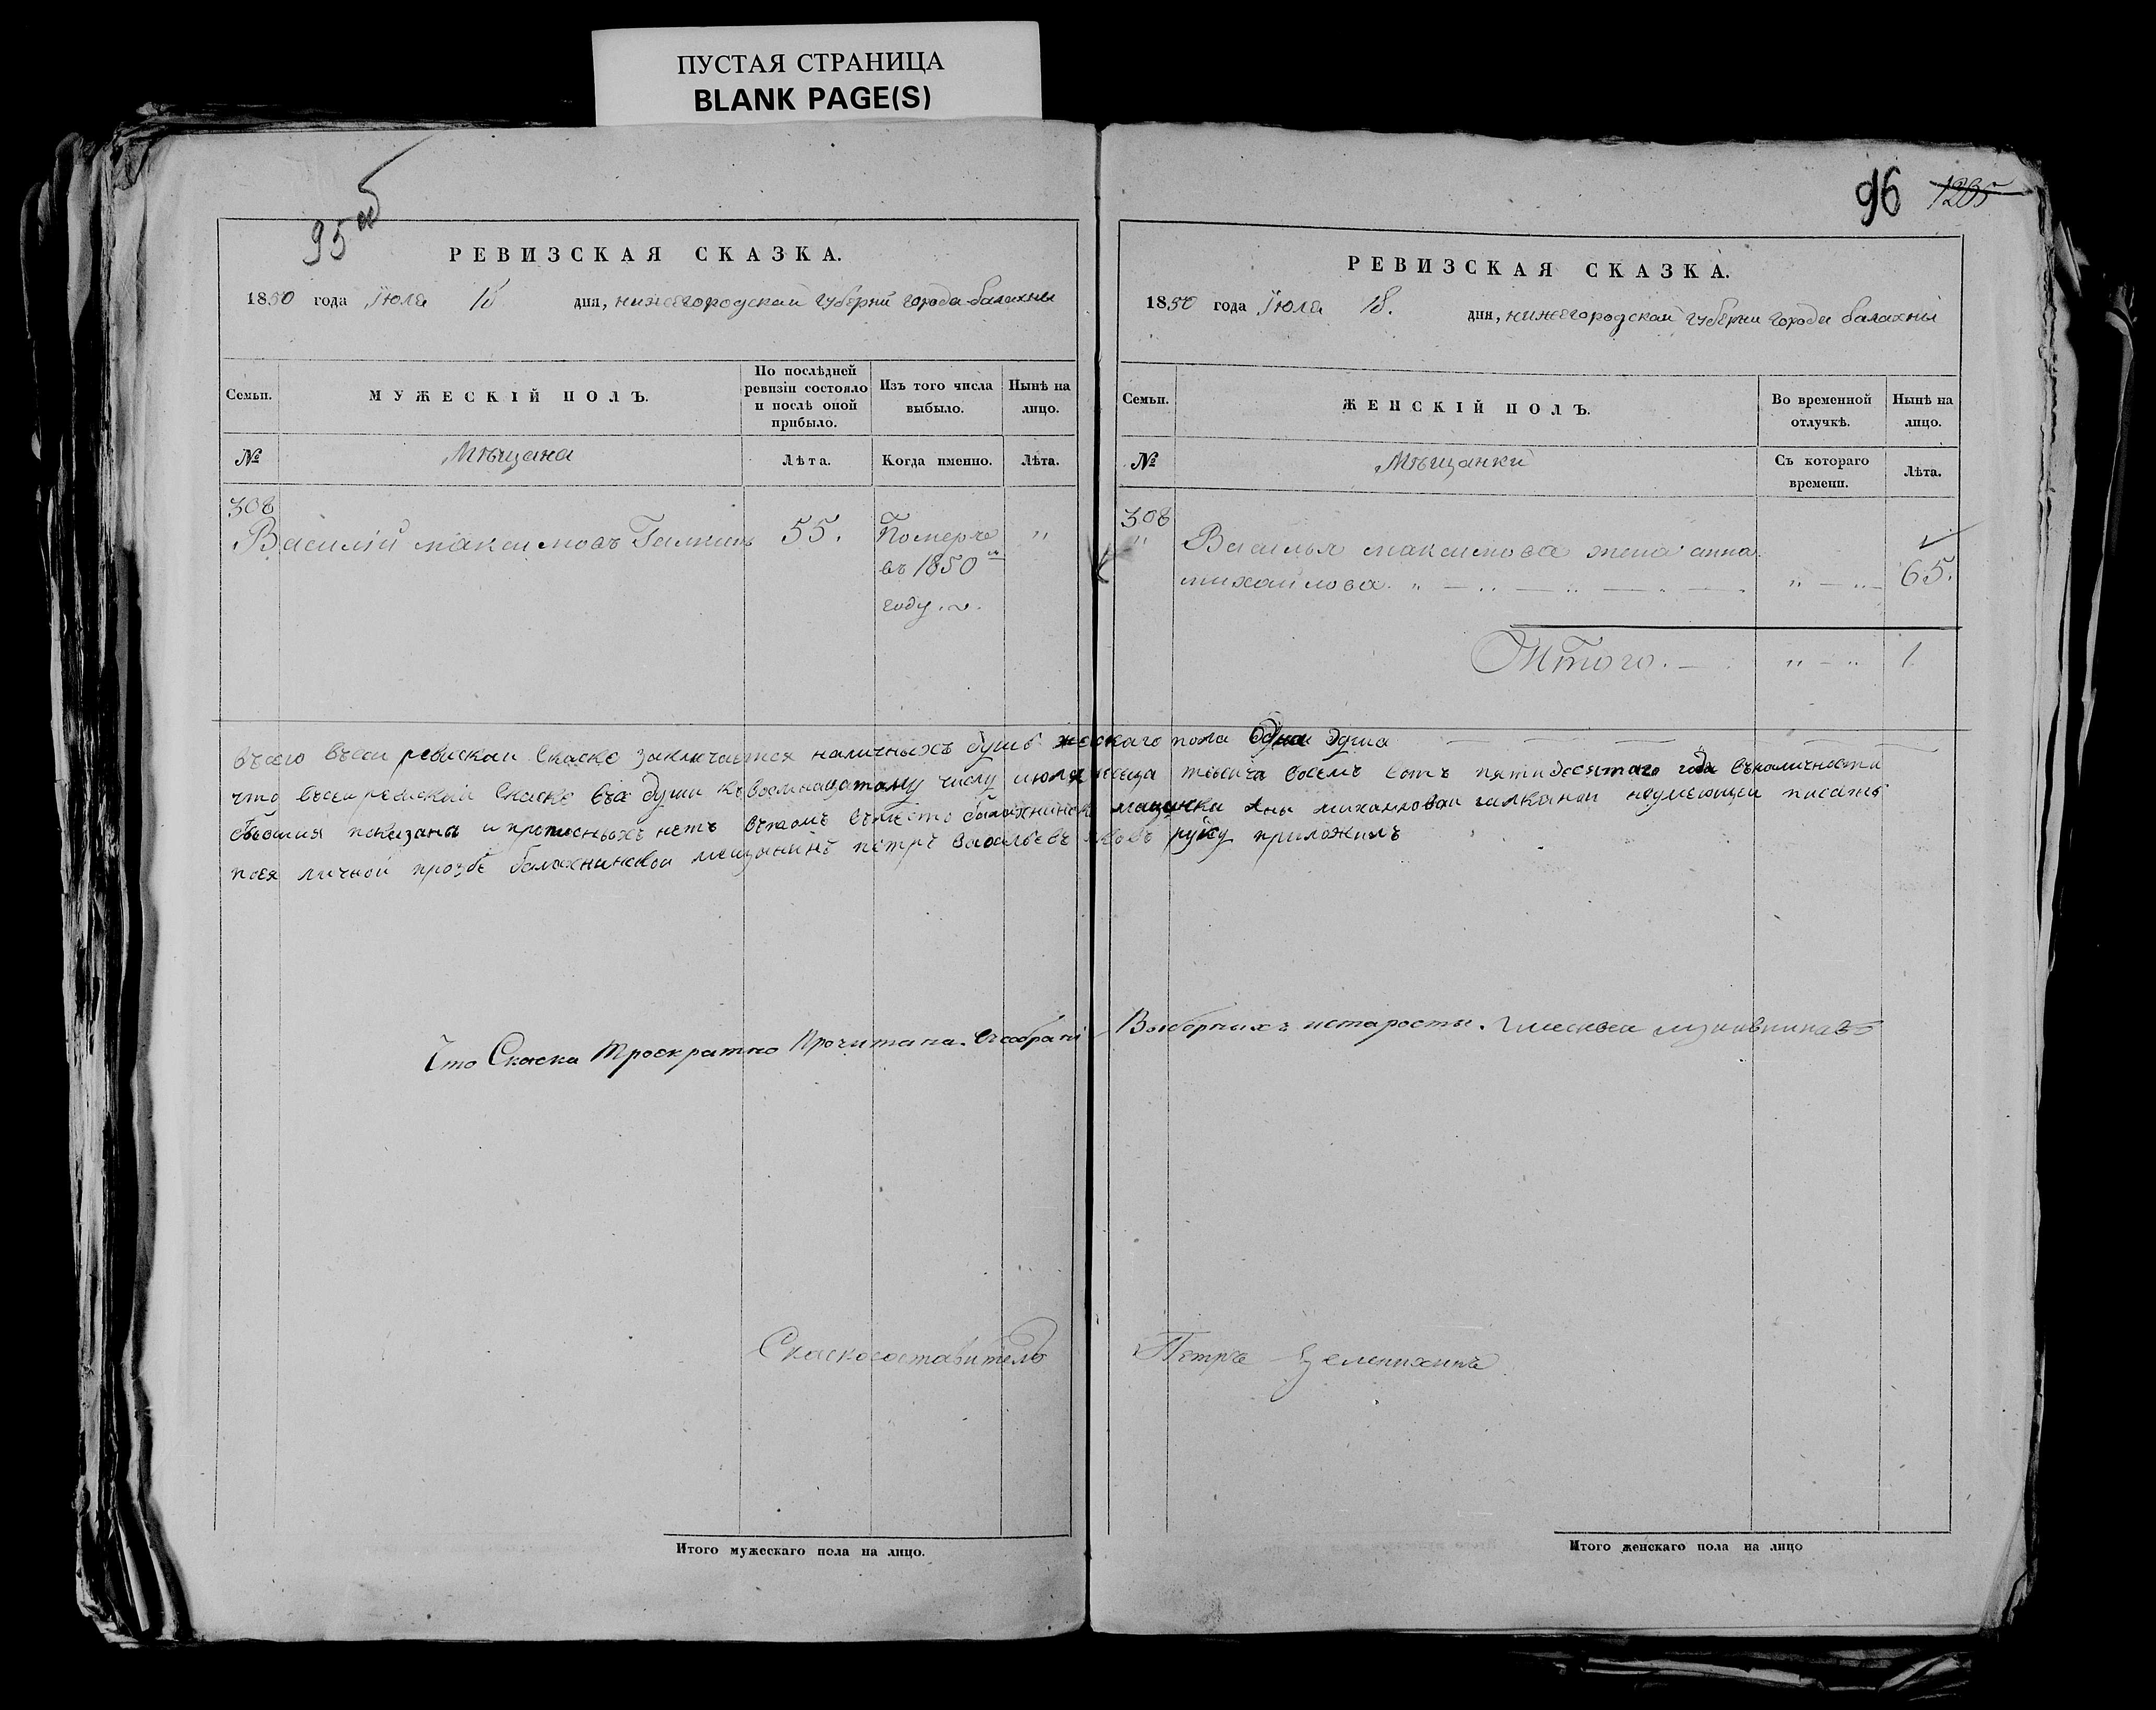 ПУСТАЯ СТРАНИЦА
BLANK PAGE(S)
95 об
РЕВИЗСКАЯ СКАЗКА.
1850 года Июля 18 дня, нижегородскай губерни города балахны
Семьи.
МУЖЕСКІЙ ПОЛЪ.
По послѣдней ревизіи состояло и послѣ оной прибыло.
Изъ того числа выбыло.
Нынѣ на лицо.
№
Мѣщана
Лѣта.
Когда именно.
Лѣта.
308
Василій максимовъ Галкинъ 55. Померъ "
въ 1850 м
году.
96 1205
РЕВИЗСКАЯ СКАЗКА.
1850 года Июля 18. дня, нижегородскай губерни города балахны
Семьи.
ЖЕНСКІЙ ПОЛЪ.
Во временной отлучкѣ.
Нынѣ на лицо.
№
Мѣщанки
Съ котораго времени.
Лѣта.
308
" Василья максимова жена анна
михайлова. " — " — " — " — " 65.
Итого. — " — " 1
всего въсеи ревискаи скаске заключается наличныхъ душъ женскаго пола одна душа
что въсеи ревискаи скаске все души къ восмнадцатому числу июля месеца тысеча восемь сотъ пятидесятаго года въналичности
бывшия показаны и прописныхъ нетъ вътомъ въместо балахнинской мещанки Аны михаиловои галкинои неумеющеи писать
поея личнои прозбе балахнинскои мещанинъ петръ васильевъ руку приложилъ
Что Скаска Троекратно Прочитана. Всобрани Выборныхъ истаросты.
Скаскосоставитель Петръ Зеленихинъ
Итого мужескаго пола на лицо.
Итого женскаго пола на лицо